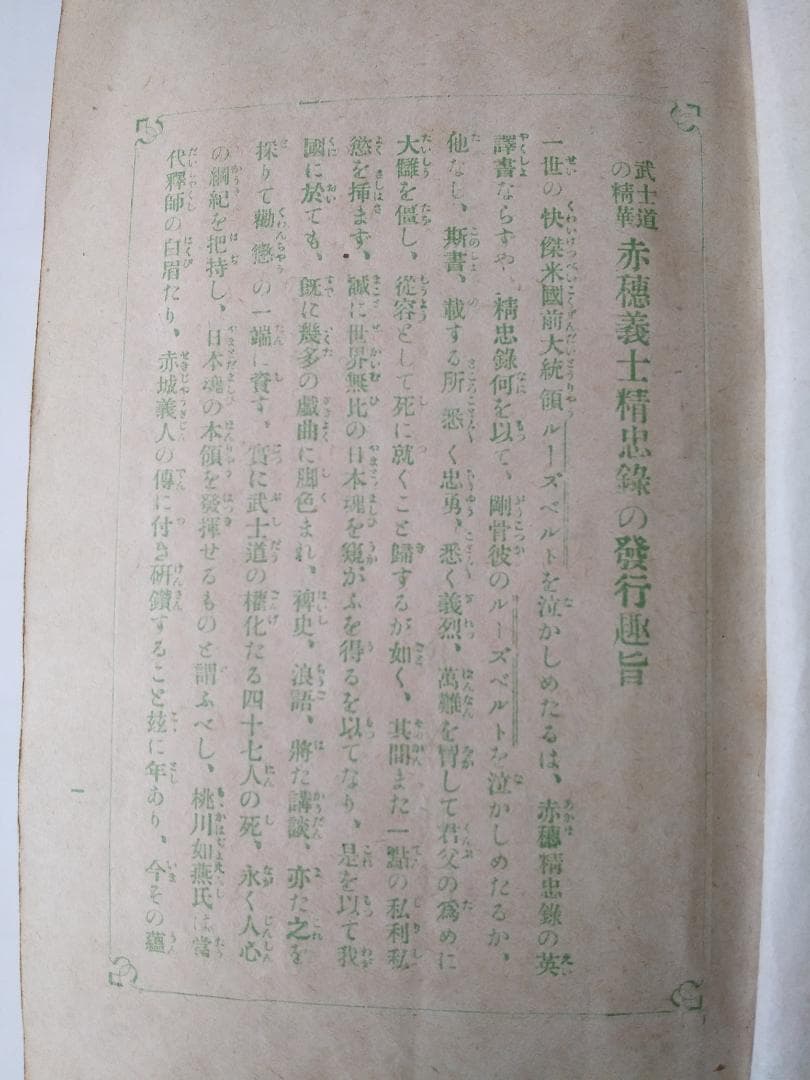 武士道の精華 赤穗義士精忠錄の發行趣旨
一世の快傑米國前大統領ルーズベルトを泣かしめたるは、赤穗精忠錄の英
譯書ならずや、精忠錄何を以て、剛骨彼のルーズベルトを泣かしめたるか、
他なし、斯書、載する所悉く忠勇、悉く義烈、萬難を冒して君父の爲めに
大讎を僵し、從容として死に就くこと歸するが如く、其間また一點の私利私
慾を挿まず、誠に世界無比の日本魂を窺がふを得るを以てなり、是を以て我
國に於ても、旣に幾多の戲曲に脚色まれ、稗史、浪語、將た講談、亦た之を
採りて勸懲の一端に資す、實に武士道の權化たる四十七人の死、永く人心
の綱紀を把持し、日本魂の本領を發揮せるものと謂ふべし、桃川如燕氏は當
代釋師の白眉たり、赤城義人の傳に付き硏鑽すること玆に年あり、今その蘊